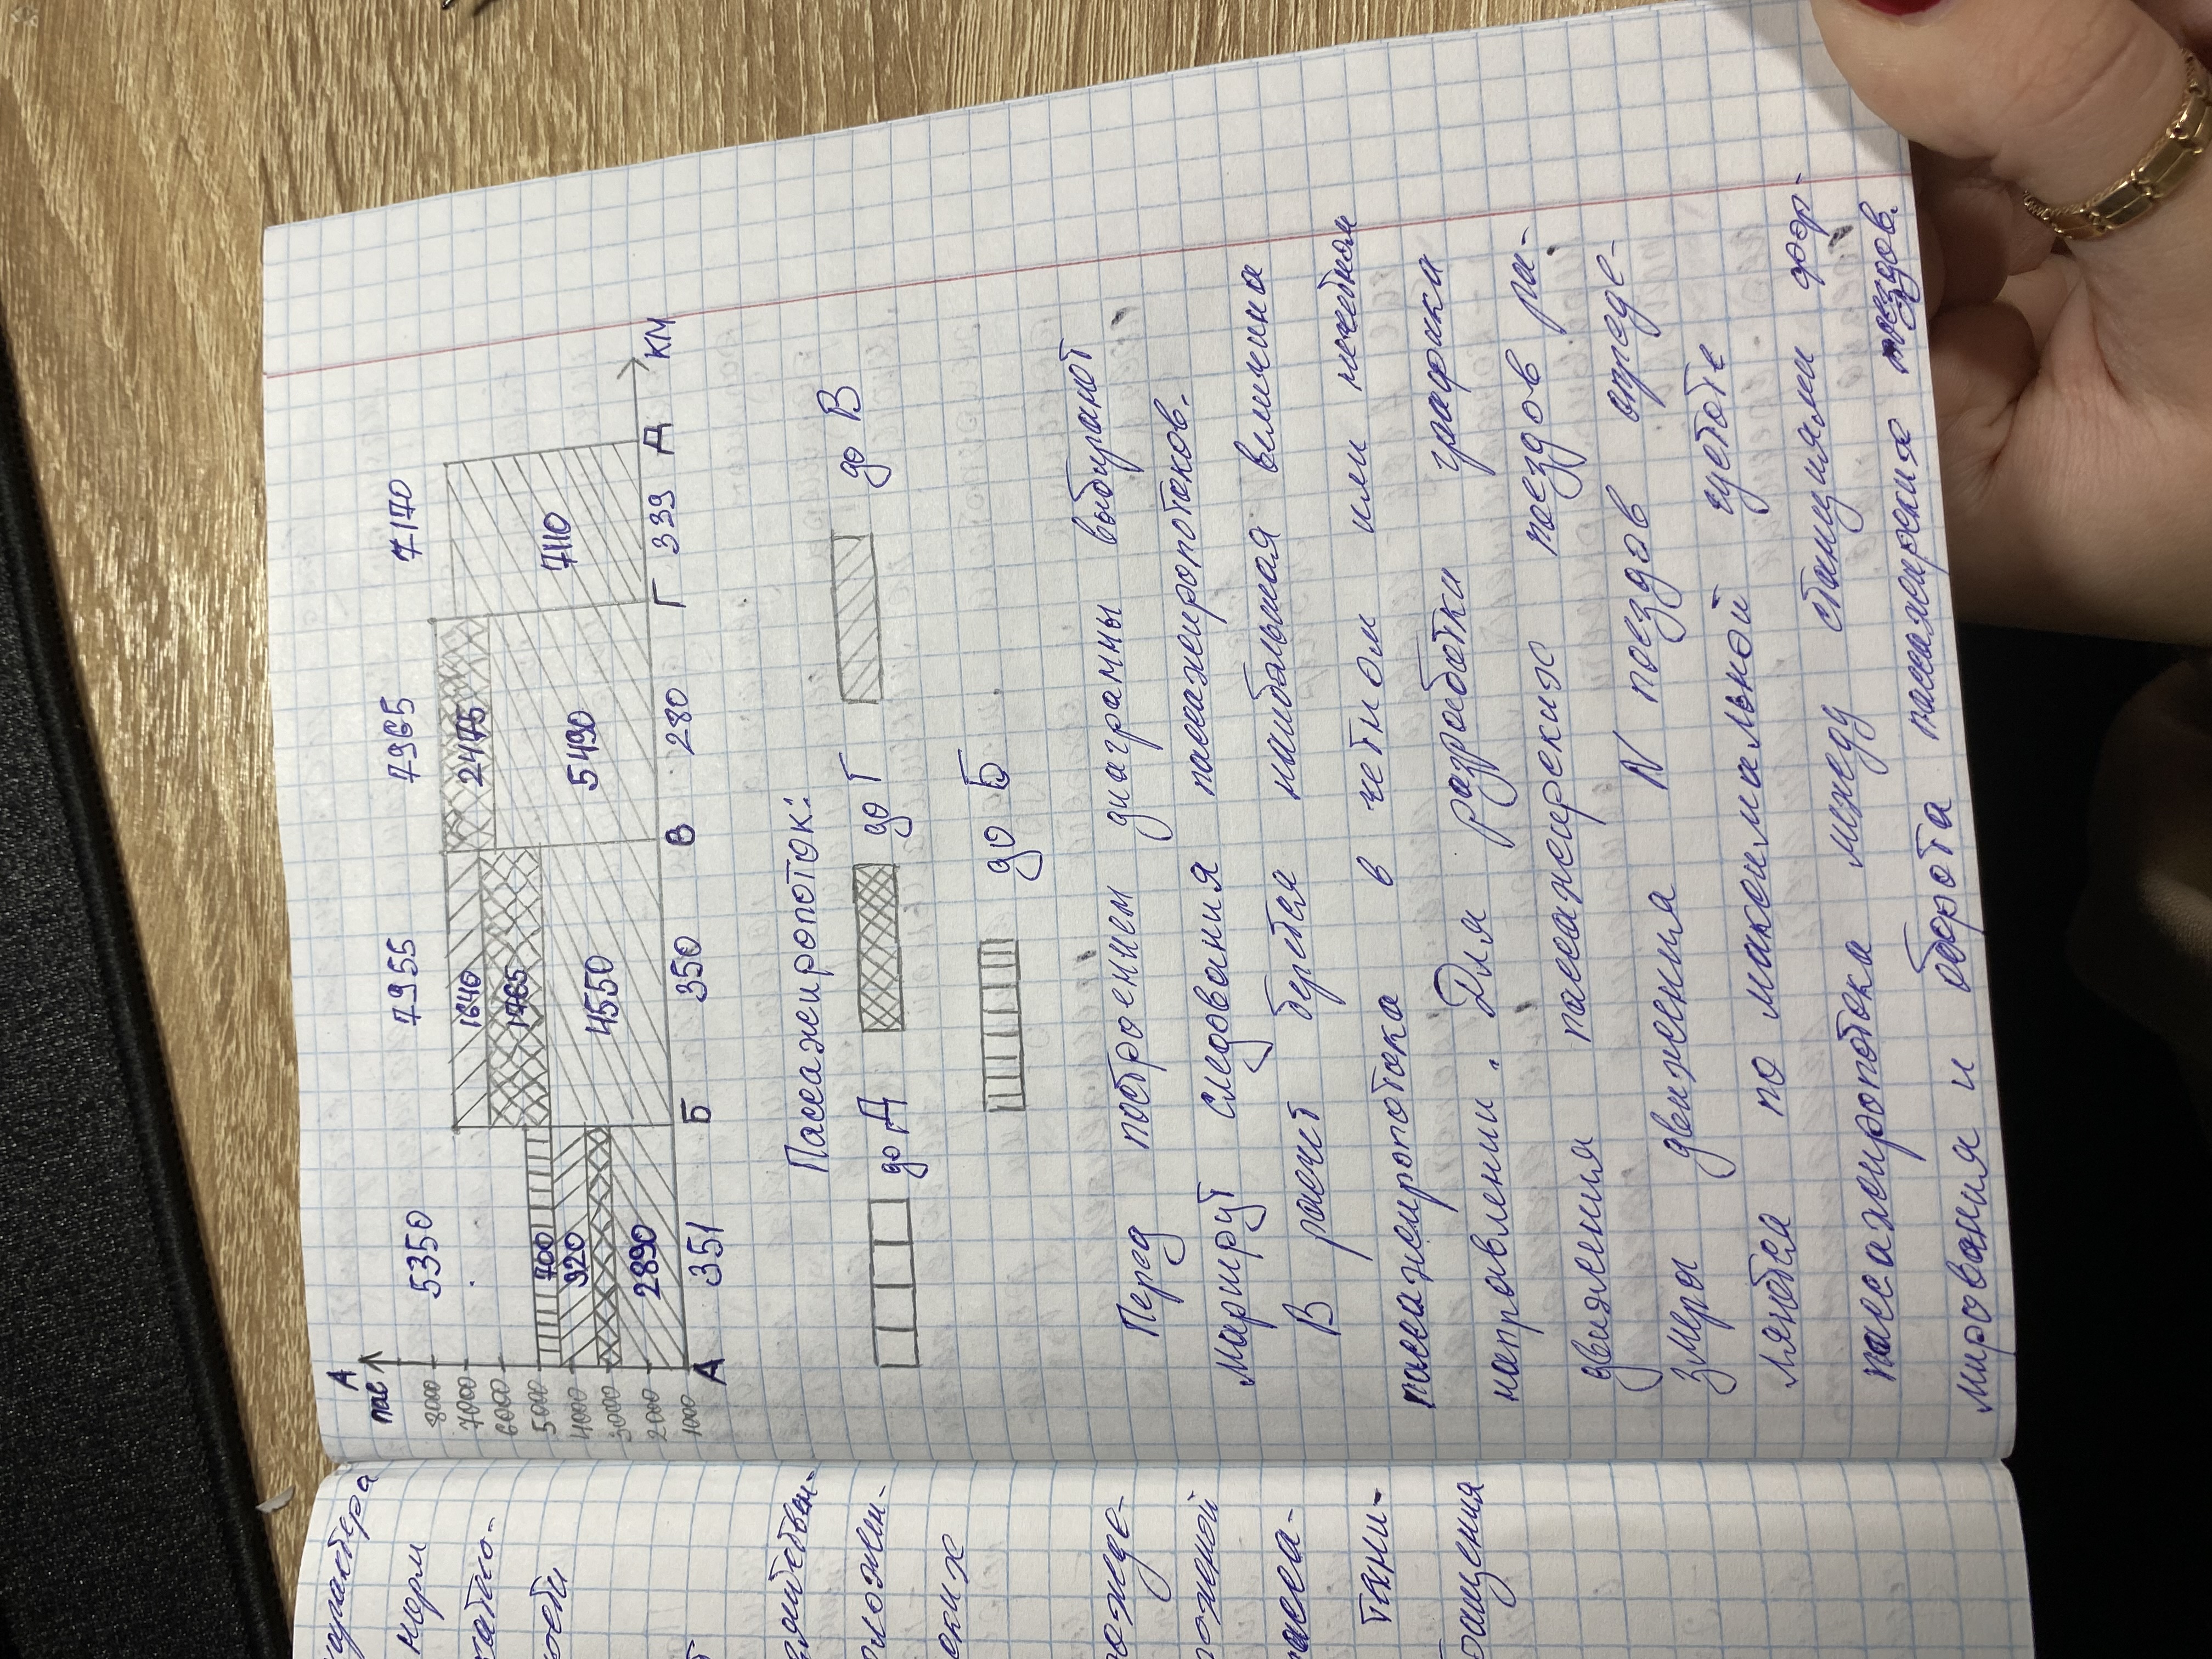 А
пас
8000
7000
6000
5000
4000
3000
2000
1000
5350 7955 7965 7170
700
920
2890
1640
1765
4550
2475
5490
7110
А 351 Б 350 В 280 Г 339 Д КМ
Пассажиропоток:
до Д до Г до В
до Б
Перед построением диаграммы выбирают
маршрут следования пассажиропотоков.
В расчет берется наибольшая величина
пассажиропотока в четном или нечетном
направлении. Для разработки графика
движения пассажирских поездов ра-
змеры движения N поездов опреде-
ляются по максимальной густоте
пассажиропотока между станциями фор-
мирования и оборота пассажирских поездов.
норм
жен-
ских
тани-
ращения